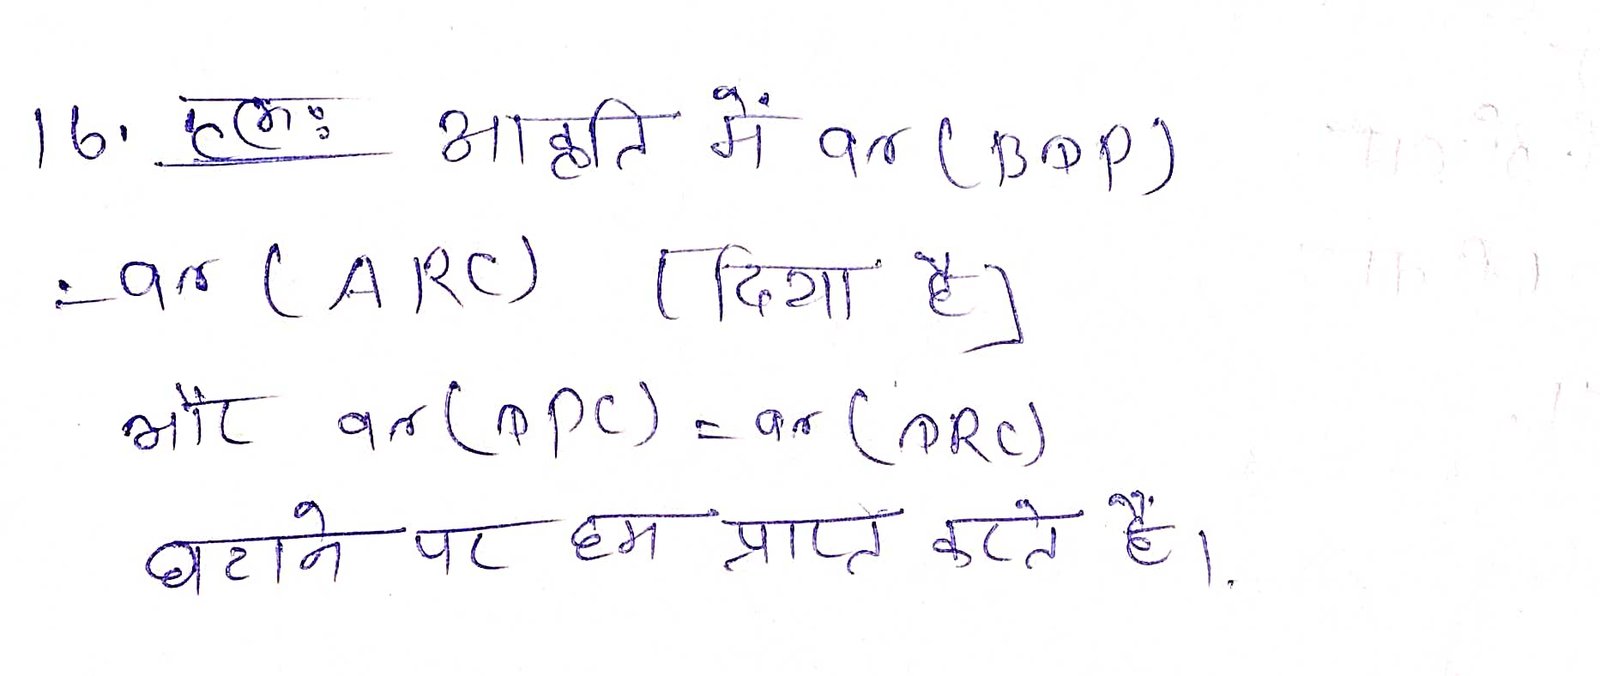 16. हलः आकृति में ar (BDP)
= ar (ARC) [दिया है]
और ar (DPC) = ar (DRC)
घटाने पर हम प्राप्त करते हैं।.